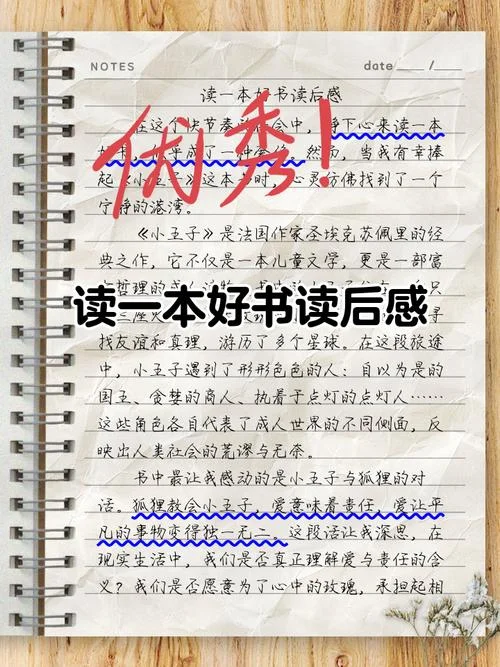 NOTES
date ____ / ____
读一本好书读后感
优秀!
在这个快节奏 会中，静下心来读一本
乎成了一种奢侈。然而，当我有幸捧
起《小王子》这本书时，心灵仿佛找到了一个
宁静的港湾。
《小王子》是法国作家圣埃克苏佩里的经
典之作，它不仅是一本儿童文学，更是一部富
读一本好书读后感
找友谊和真理，游历了多个星球。在这段旅途
中，小王子遇到了形形色色的人：自以为是的
国王、贪婪的商人、执着于点灯的点灯人……
这些角色各自代表了成人世界的不同侧面，反
映出人类社会的荒谬与无奈。
书中最让我感动的是小王子与狐狸的对
话。狐狸教会小王子，爱意味着责任，爱让平
凡的事物变得独一无二。这段话让我深思，在
现实生活中，我们是否真正理解爱与责任的含
义？我们是否愿意为了心中的玫瑰，承担起相